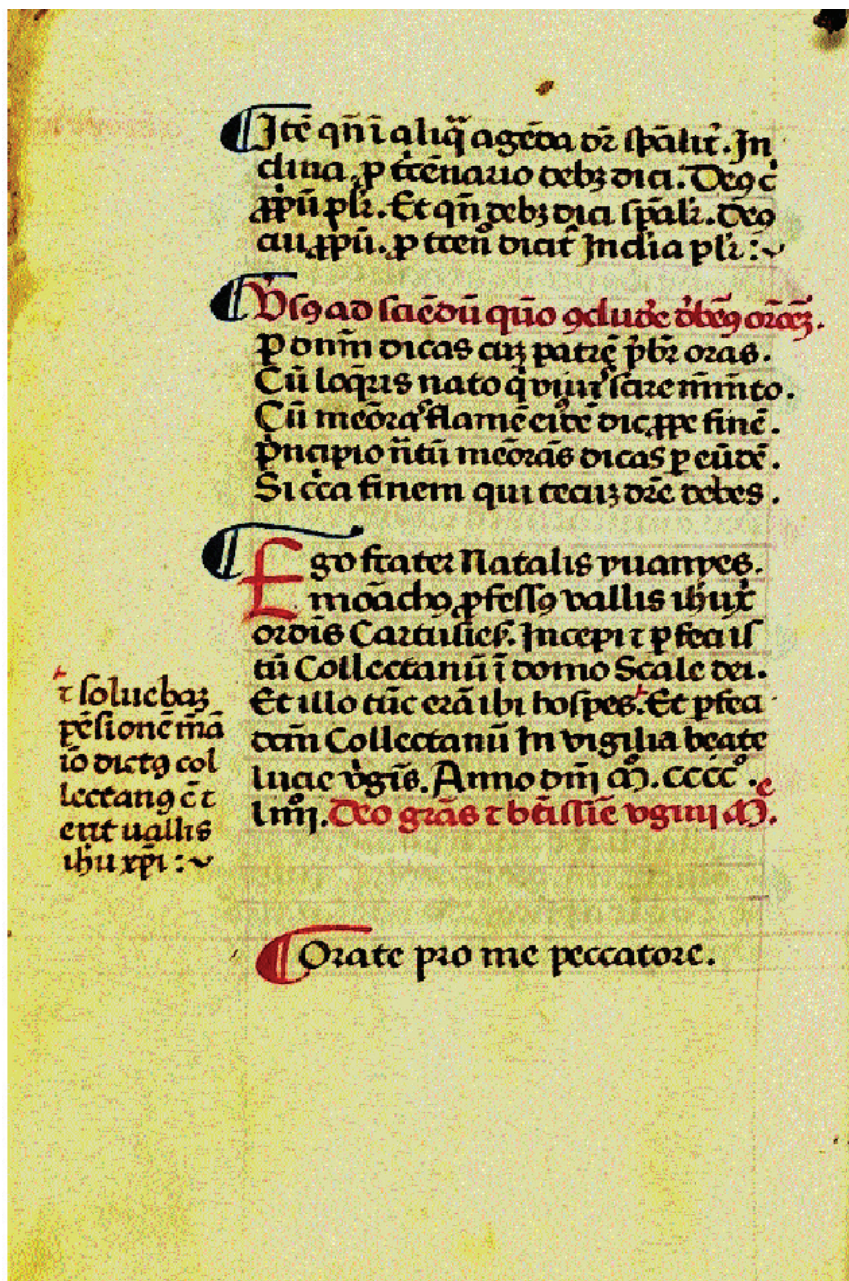 Itē qñ ī aliq̄ agēda dr̄ spāliť. In
clina, ꝓ tꝛēnario debꝫ dici. Deꝰ c̄
ꝓpū pꝉr. Et qñ debꝫ dici spālr. deꝰ
cui ꝓpū. ꝓ tꝛeñ dicit̄ Inclīa pꝉr :
Vſꝰ ad sciēdū quō ꝯclude debēꝰ orōeꝫ.
P dnm dicas cuꝫ patrē pbr oras.
Cū loqris nato q viuit scire mm̄to.
Cū meōras flamē eiꝰdē dic ꝓpe finē.
Pncipio ñtū meōrās dicas ꝑ eūdē.
Si cca finem qui tecuꝫ dr̄e debes.
Ego frater Natalis yuanyes.
moāchꝰ ꝓfessꝰ vallis ihu xp̄i
ordīs Cartusieñ. Incepi ⁊ ꝑfeci is
tū Collectanū ī domo Scale dei.
Et illo tūc erā ibi hospes. Et ꝑfeci
dcm̄ Collectanū In vigilia beate
lucie vgīs. Anno dnī M. CCCCº.
liiiⁱ. Deo grās ⁊ btīssīe vgini Mᵉ.
⁊ soluebaꝫ
pēsionē mā
īo dictꝰ col
lectanꝰ ē ⁊
erit uallis
ihu xp̄i :
Orate pro me peccatore.